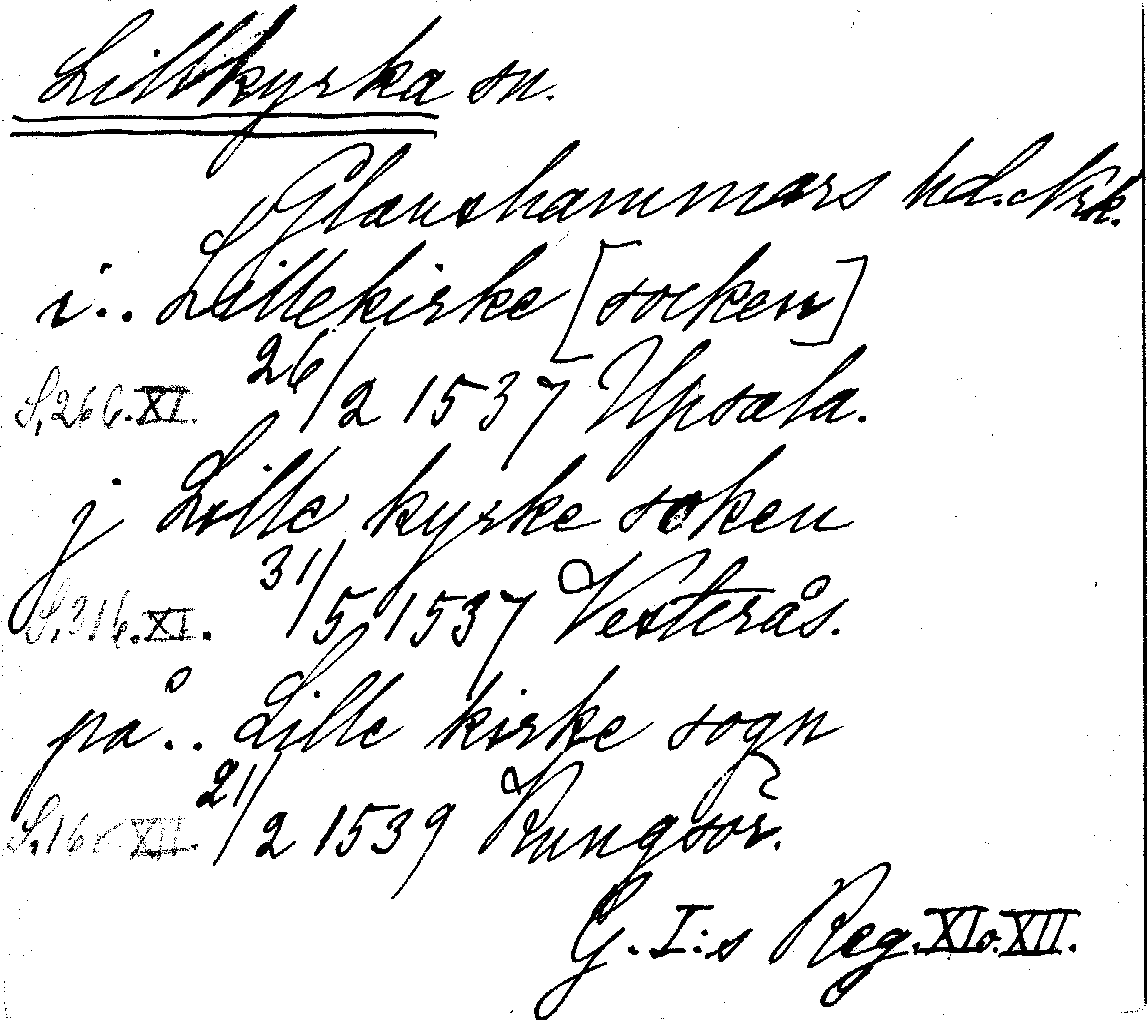 Lillkyrka sn.
Glanshammars hd. Nrk.
i.. Lillekirke [socken]
S. 266. XI. 26/2 1537 Upsala.
j Lille kyrke soken
S. 316. XI. 31/5 1537 Vesterås.
på.. Lille kirke sogn
XII. 21/2 1539 Kungsör.
G. I:s Reg. XI o. XII.